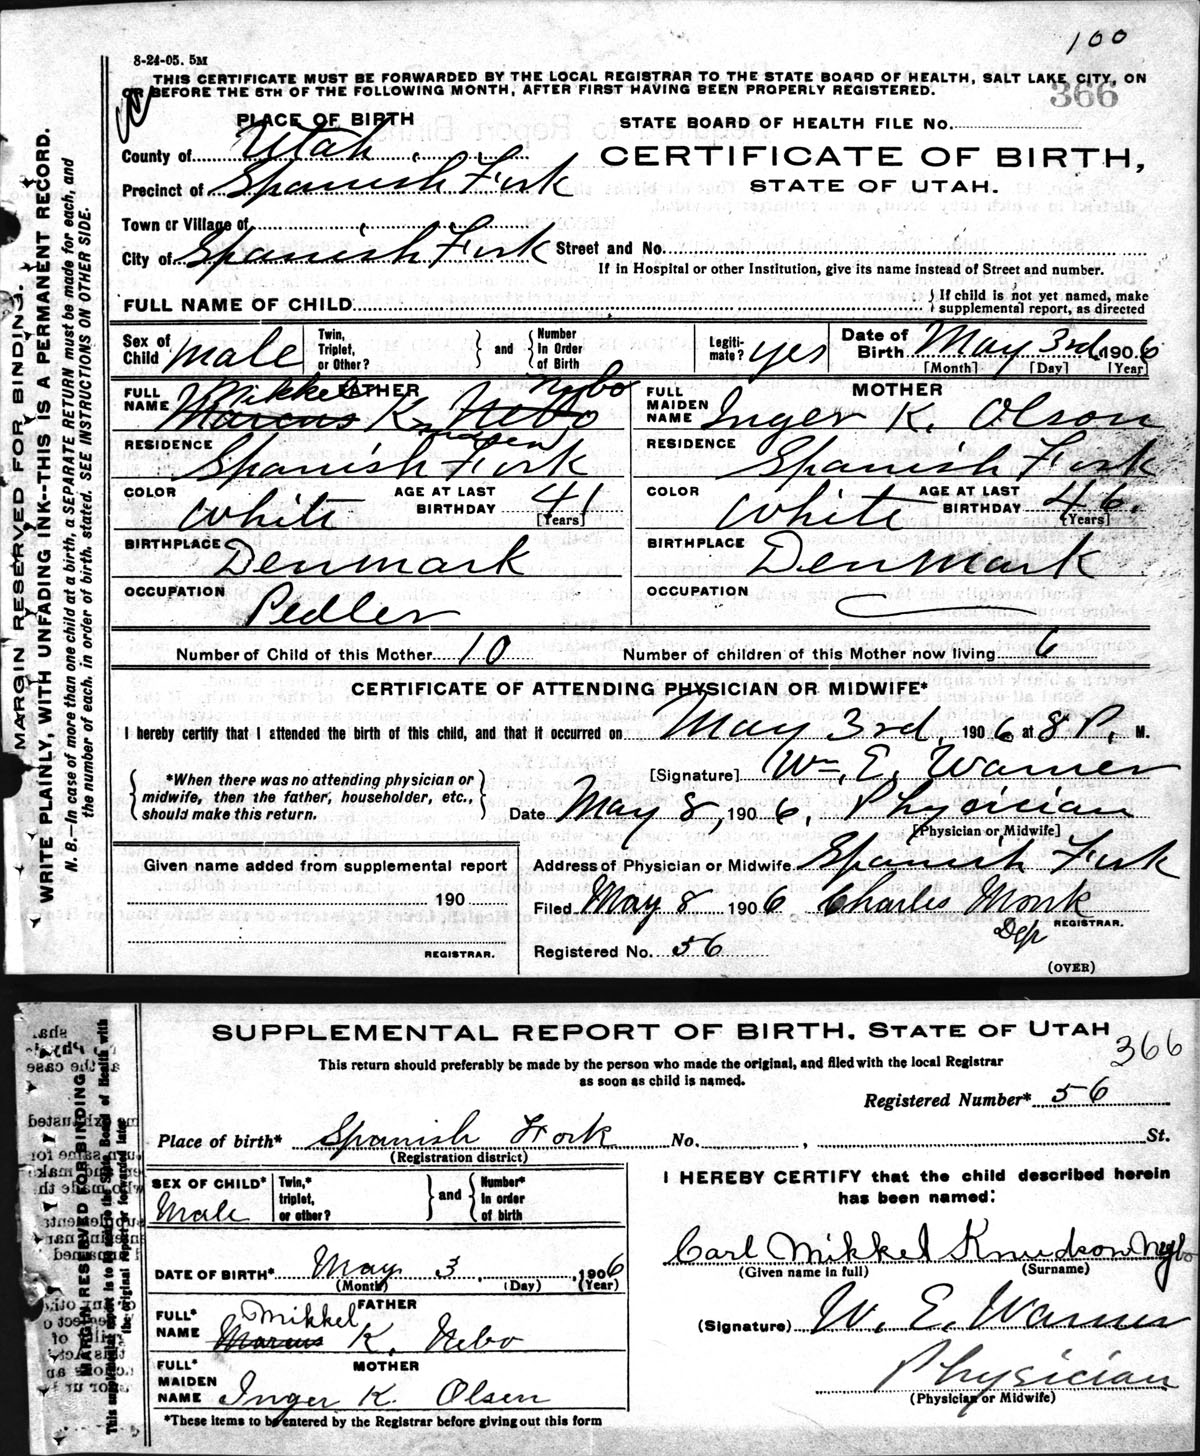 100
8-24-05. 5M
THIS CERTIFICATE MUST BE FORWARDED BY THE LOCAL REGISTRAR TO THE STATE BOARD OF HEALTH, SALT LAKE CITY, ON
OR BEFORE THE 5TH OF THE FOLLOWING MONTH, AFTER FIRST HAVING BEEN PROPERLY REGISTERED.
366
PLACE OF BIRTH
STATE BOARD OF HEALTH FILE No.
County of Utah
CERTIFICATE OF BIRTH,
Precinct of Spanish Fork
STATE OF UTAH.
Town or Village of
City of Spanish Fork Street and No.
If in Hospital or other Institution, give its name instead of Street and number.
FULL NAME OF CHILD { If child is not yet named, make supplemental report, as directed
Sex of Child male Twin, Triplet, or Other? } and { Number In Order of Birth Legiti-mate? yes Date of Birth May 3rd, 1906
[Month] [Day] [Year]
FATHER
FULL NAME Mikkel Marcus K. Nebo Nybo
MOTHER
FULL MAIDEN NAME Inger K. Olson
RESIDENCE Spanish Fork
RESIDENCE Spanish Fork
COLOR White AGE AT LAST BIRTHDAY 41 [Years]
COLOR White AGE AT LAST BIRTHDAY 46. [Years]
BIRTHPLACE Denmark
BIRTHPLACE Denmark
OCCUPATION Pedler
OCCUPATION
Number of Child of this Mother 10 Number of children of this Mother now living 6
CERTIFICATE OF ATTENDING PHYSICIAN OR MIDWIFE*
I hereby certify that I attended the birth of this child, and that it occurred on May 3rd, 1906 at 8 P. M.
{ *When there was no attending physician or midwife, then the father, householder, etc., should make this return. }
[Signature] Wm. E. Warner
Date May 8, 1906, Physician
[Physician or Midwife]
Given name added from supplemental report
Address of Physician or Midwife Spanish Fork
190
Filed May 8 1906 Charles Monk
Dep REGISTRAR.
REGISTRAR.
Registered No. 56
(OVER)
MARGIN RESERVED FOR BINDING.
WRITE PLAINLY, WITH UNFADING INK--THIS IS A PERMANENT RECORD.
N. B.—In case of more than one child at a birth, a SEPARATE RETURN must be made for each, and
the number of each, in order of birth, stated. SEE INSTRUCTIONS ON OTHER SIDE.
SUPPLEMENTAL REPORT OF BIRTH. STATE OF UTAH
366
This return should preferably be made by the person who made the original, and filed with the local Registrar
as soon as child is named.
Registered Number* 56
Place of birth* Spanish Fork No. , St.
(Registration district)
SEX OF CHILD* Male Twin,* triplet, or other? } and { Number* In order of birth
I HEREBY CERTIFY that the child described herein
has been named:
Carl Mikkel Knudson Nybo
(Given name in full) (Surname)
DATE OF BIRTH* May 3, 1906
(Month) (Day) (Year)
FATHER
FULL* NAME Mikkel Marcus K. Nebo
(Signature) W. E. Warner
MOTHER
FULL* MAIDEN NAME Inger K. Olsen
Physician
(Physician or Midwife)
*These items to be entered by the Registrar before giving out this form
MARGIN RESERVED FOR BINDING